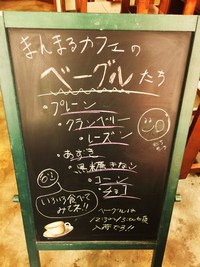 まんまるカフェの
ベーグルたち
・プレーン
・クランベリー
・レーズン
・あずき
・黒糖きなこ
・コーン
・チョコ
いろいろ食べて
みてネ!!
ベーグルは
入荷です!!